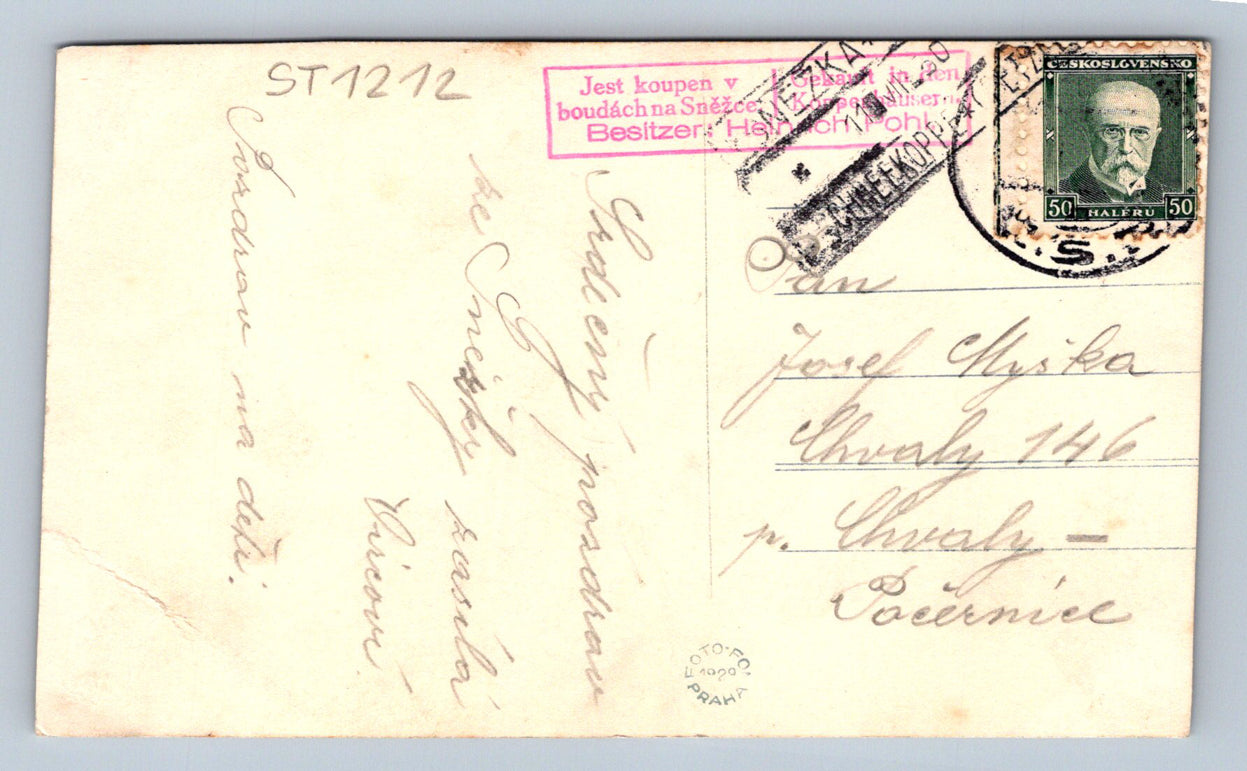 ST1212
Jest koupen v
boudách na Sněžce
Gekauft in den
Koppenhäuser
Besitzer: Heinrich Pohl
SNĚŽKA
SCHNEEKOPPE
ČESKOSLOVENSKO
50 HALÉŘŮ 50
Srdečný pozdrav
ze Sněžky zasílá
Pozdrav na děti.
Pan
Josef Myška
Chvaly 146
p. Chvaly –
Počernice
FOTO-FO
1929
PRAHA